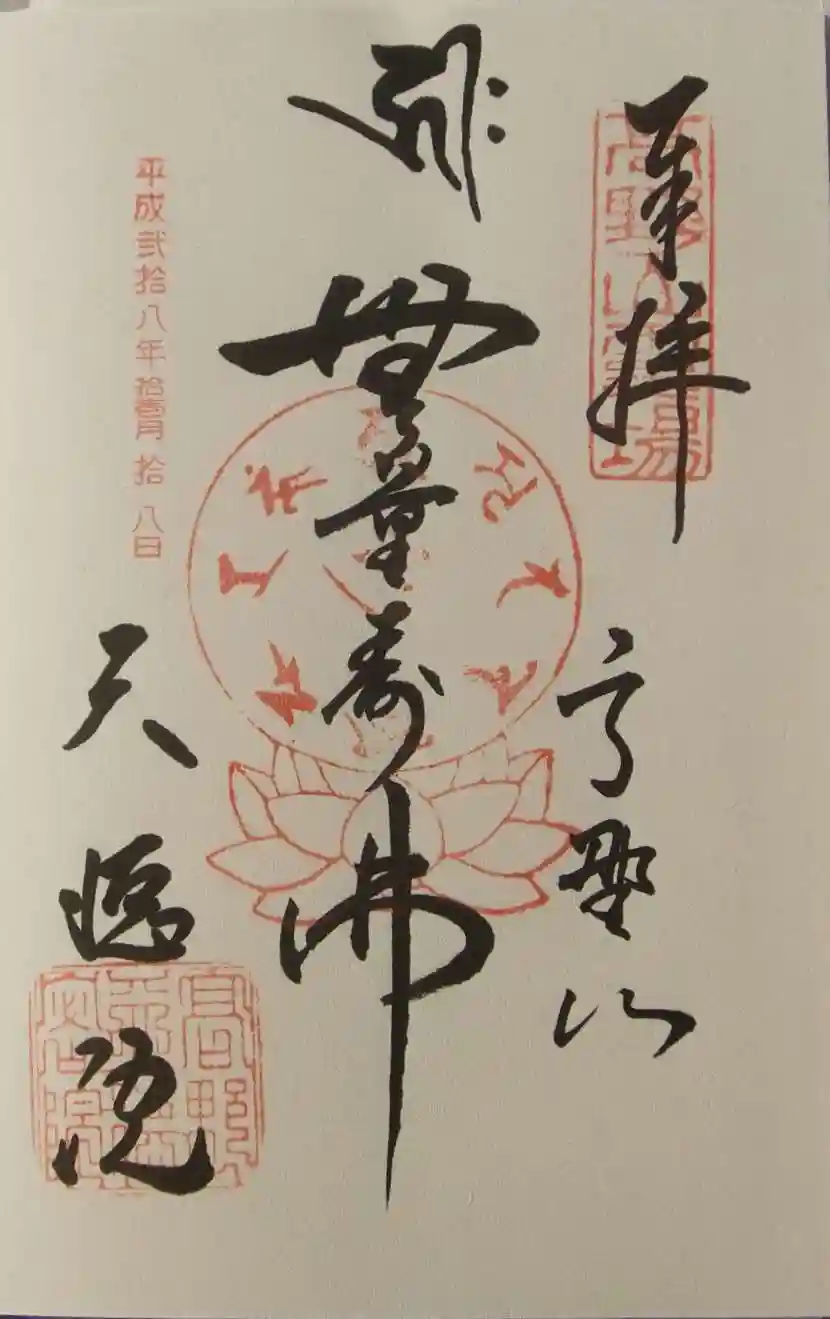 奉拝
高野山霊場
高野山
𑖮𑖿𑖨𑖱𑖾
無量壽佛
平成弐拾八年拾壹月拾八日
天徳院